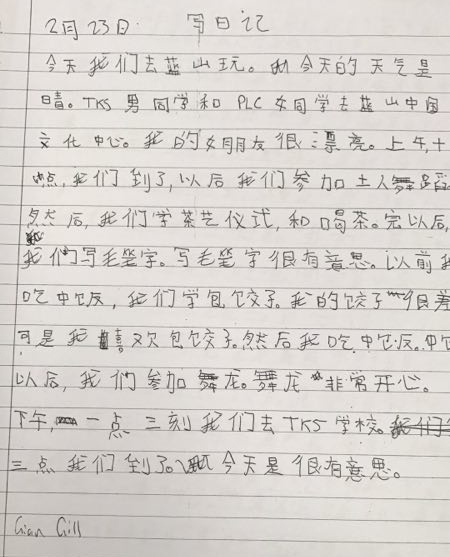 2月23日 写日记
今天我们去蓝山玩。今天的天气是
晴。TKS 男同学和 PLC 女同学去蓝山中国
文化中心。我的女朋友很漂亮。上午,十
点,我们到了,以后我们参加土人舞蹈
然后,我们学茶艺仪式,和喝茶。完以后,
我们写毛笔字。写毛笔字很有意思。以前我
吃中饭,我们学包饺子。我的饺子很差
可是我喜欢包饺子。然后我吃中饭。中饭
以后,我们参加舞龙。舞龙非常开心。
下午,一点三刻我们去TKS学校。
三点我们到了。今天是很有意思。
Gian Gill